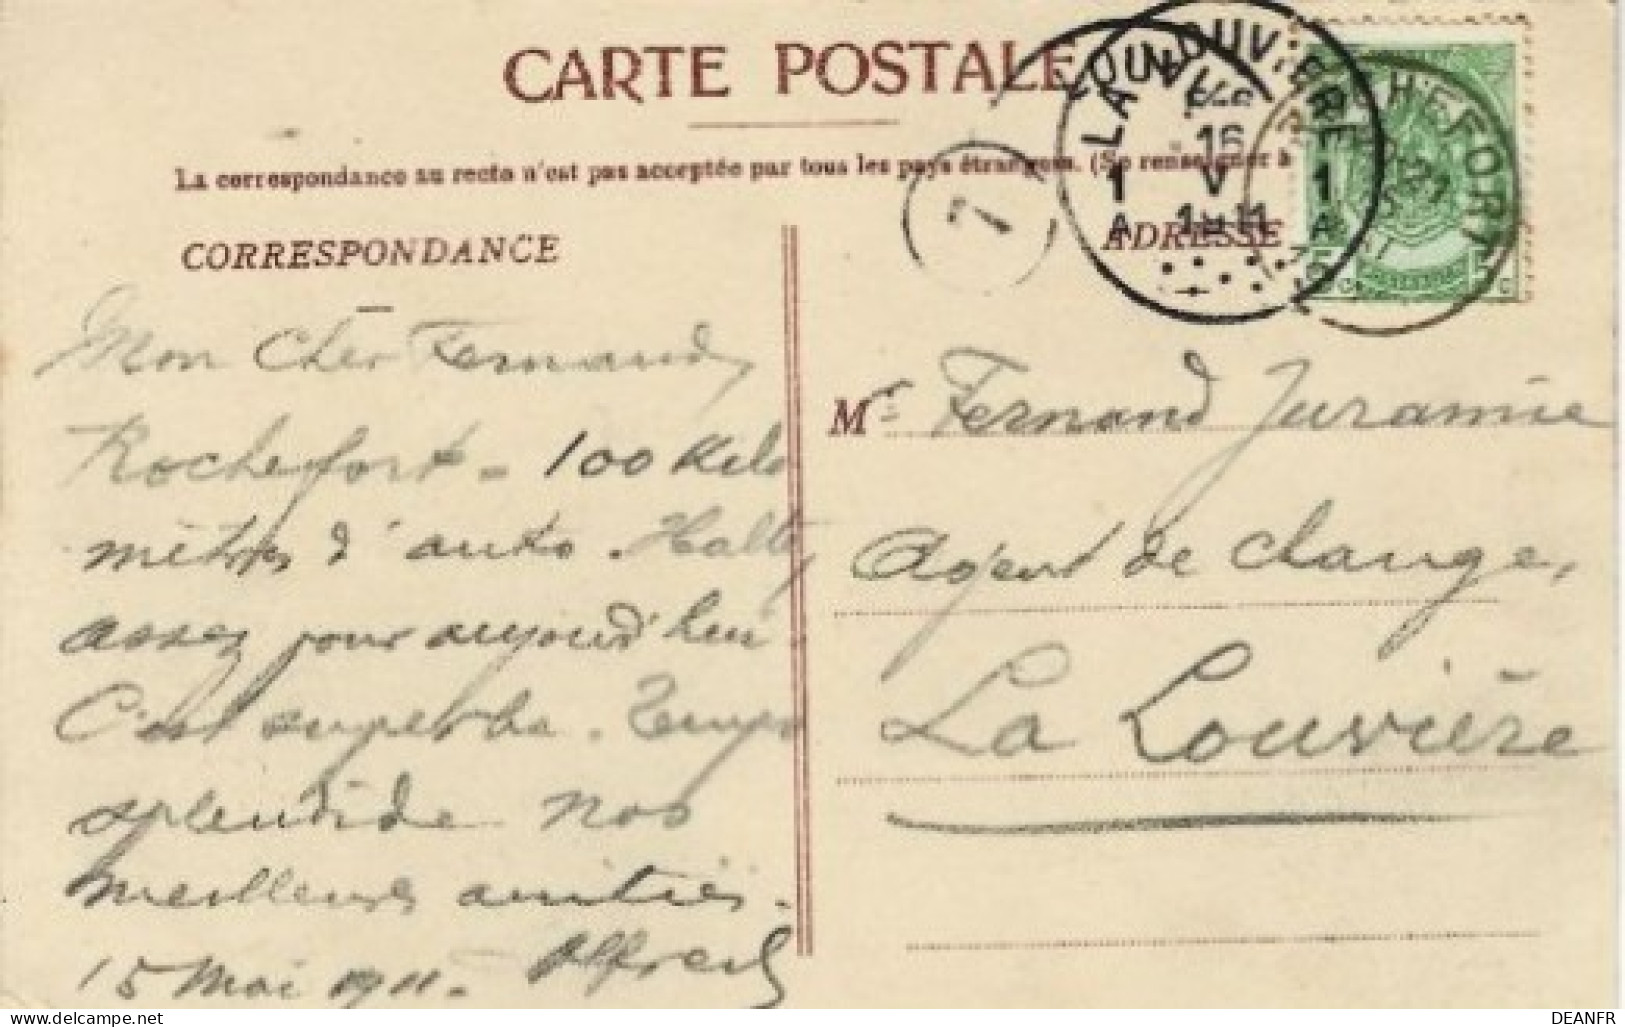 CARTE POSTALE
La correspondance au recto n'est pas acceptée par tous les pays étrangers. (Se renseigner à
CORRESPONDANCE
Mon Cher Fernand,
Rochefort - 100 Kilo
mètres d'auto. Halte,
assez pour aujourd'hui
C'est superbe. Temps
splendide nos
meilleures amitiés.
15 Mai 1911. Alfred
ADRESSE
Mr Fernand Juramie
Agent de change,
La Louvière
LA LOUVIÈRE
1 16 1
A V A
7
5 c 5 c
DEANFR